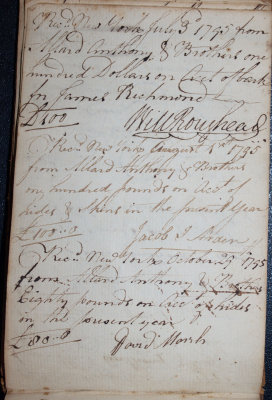 Rec'd New York July 3d 1795 from
Allard Anthony & Brothers one
hundred Dollars on Acct of bark
for James Richmond
D100
Will
Rec'd New York August 1st 1795
from Allard Anthony & Brothers
one hundred pounds on Acct of
hides & Skins in the present Year
£100..0
Jacob J Arden
Rec'd New York October 1795
from Allard Anthony & Brothers
Eighty pounds on Acct of hides
in the present year
£80..0
Marsh